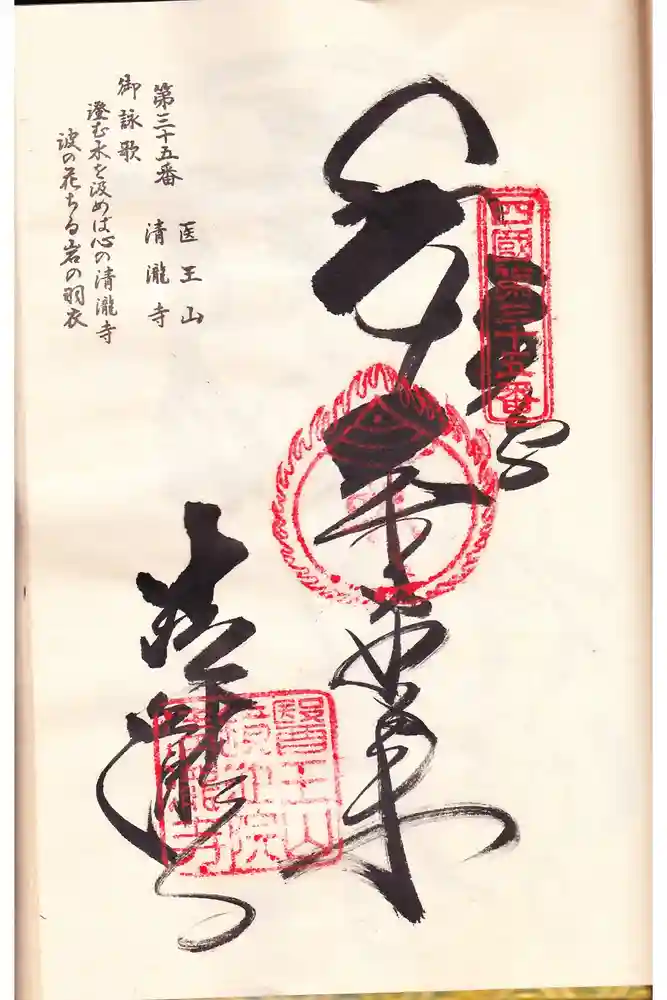 四國第三十五番
醫王山
鏡池院
清瀧寺
清瀧寺
第三十五番
医王山
清瀧寺
御詠歌
澄む水を汲めは心の清瀧寺
波の花ちる岩の羽衣